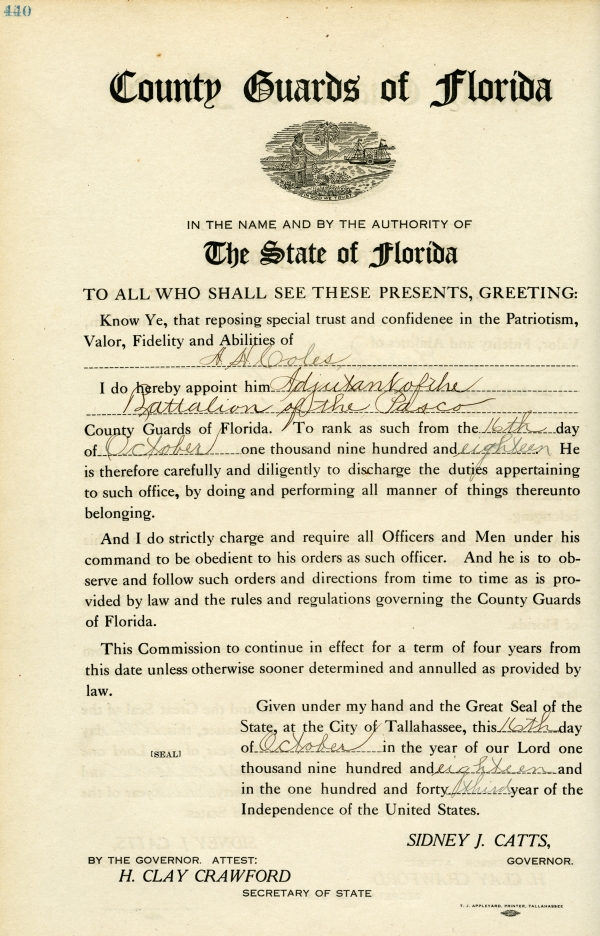 440
County Guards of Florida
IN GOD WE TRUST
IN THE NAME AND BY THE AUTHORITY OF
The State of Florida
TO ALL WHO SHALL SEE THESE PRESENTS, GREETING:
Know Ye, that reposing special trust and confidence in the Patriotism,
Valor, Fidelity and Abilities of
H H Coles
I do hereby appoint him Adjutant of the
Battalion of the Pasco
County Guards of Florida. To rank as such from the 16th day
of October one thousand nine hundred and eighteen He
is therefore carefully and diligently to discharge the duties appertaining
to such office, by doing and performing all manner of things thereunto
belonging.
And I do strictly charge and require all Officers and Men under his
command to be obedient to his orders as such officer. And he is to ob-
serve and follow such orders and directions from time to time as is pro-
vided by law and the rules and regulations governing the County Guards
of Florida.
This Commission to continue in effect for a term of four years from
this date unless otherwise sooner determined and annulled as provided by
law.
Given under my hand and the Great Seal of the
State, at the City of Tallahassee, this 16th day
of October in the year of our Lord one
[SEAL]
thousand nine hundred and eighteen and
in the one hundred and forty third year of the
Independence of the United States.
SIDNEY J. CATTS,
GOVERNOR.
BY THE GOVERNOR. ATTEST:
H. CLAY CRAWFORD
SECRETARY OF STATE
T. J. APPLEYARD, PRINTER, TALLAHASSEE